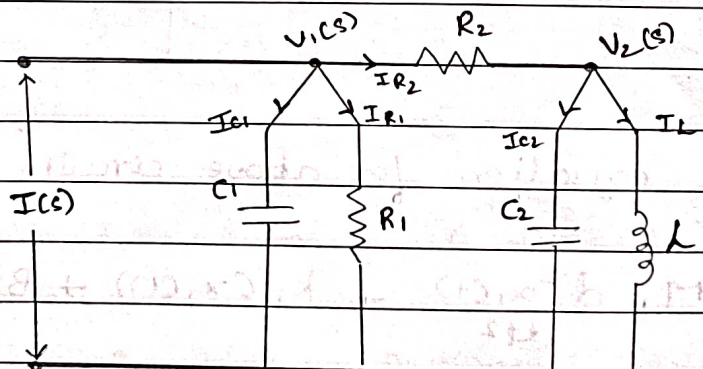 V1(S) R2 V2(S)
IR2
IC1 IR1 IC2 IL
I(S) C1 R1 C2 L